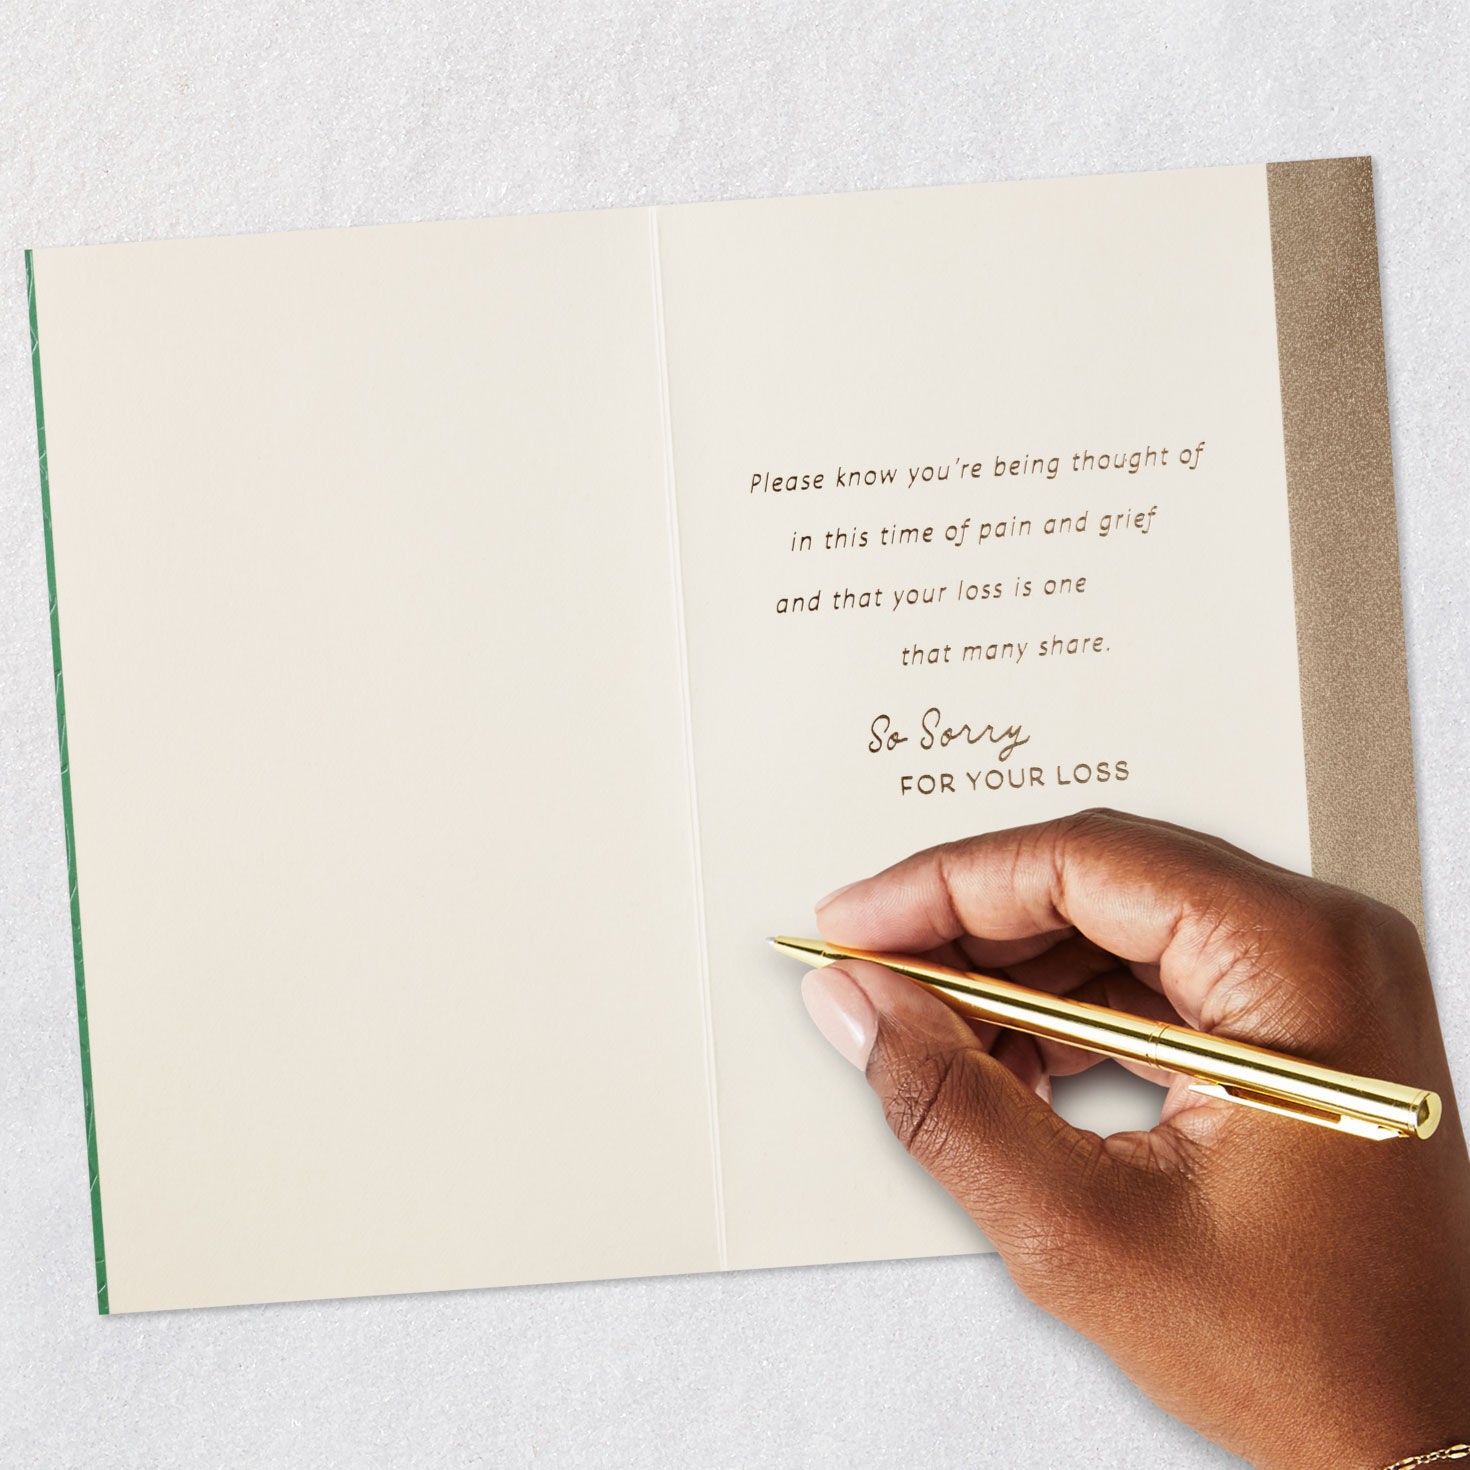 Please know you're being thought of
in this time of pain and grief
and that your loss is one
that many share.
So Sorry
FOR YOUR LOSS